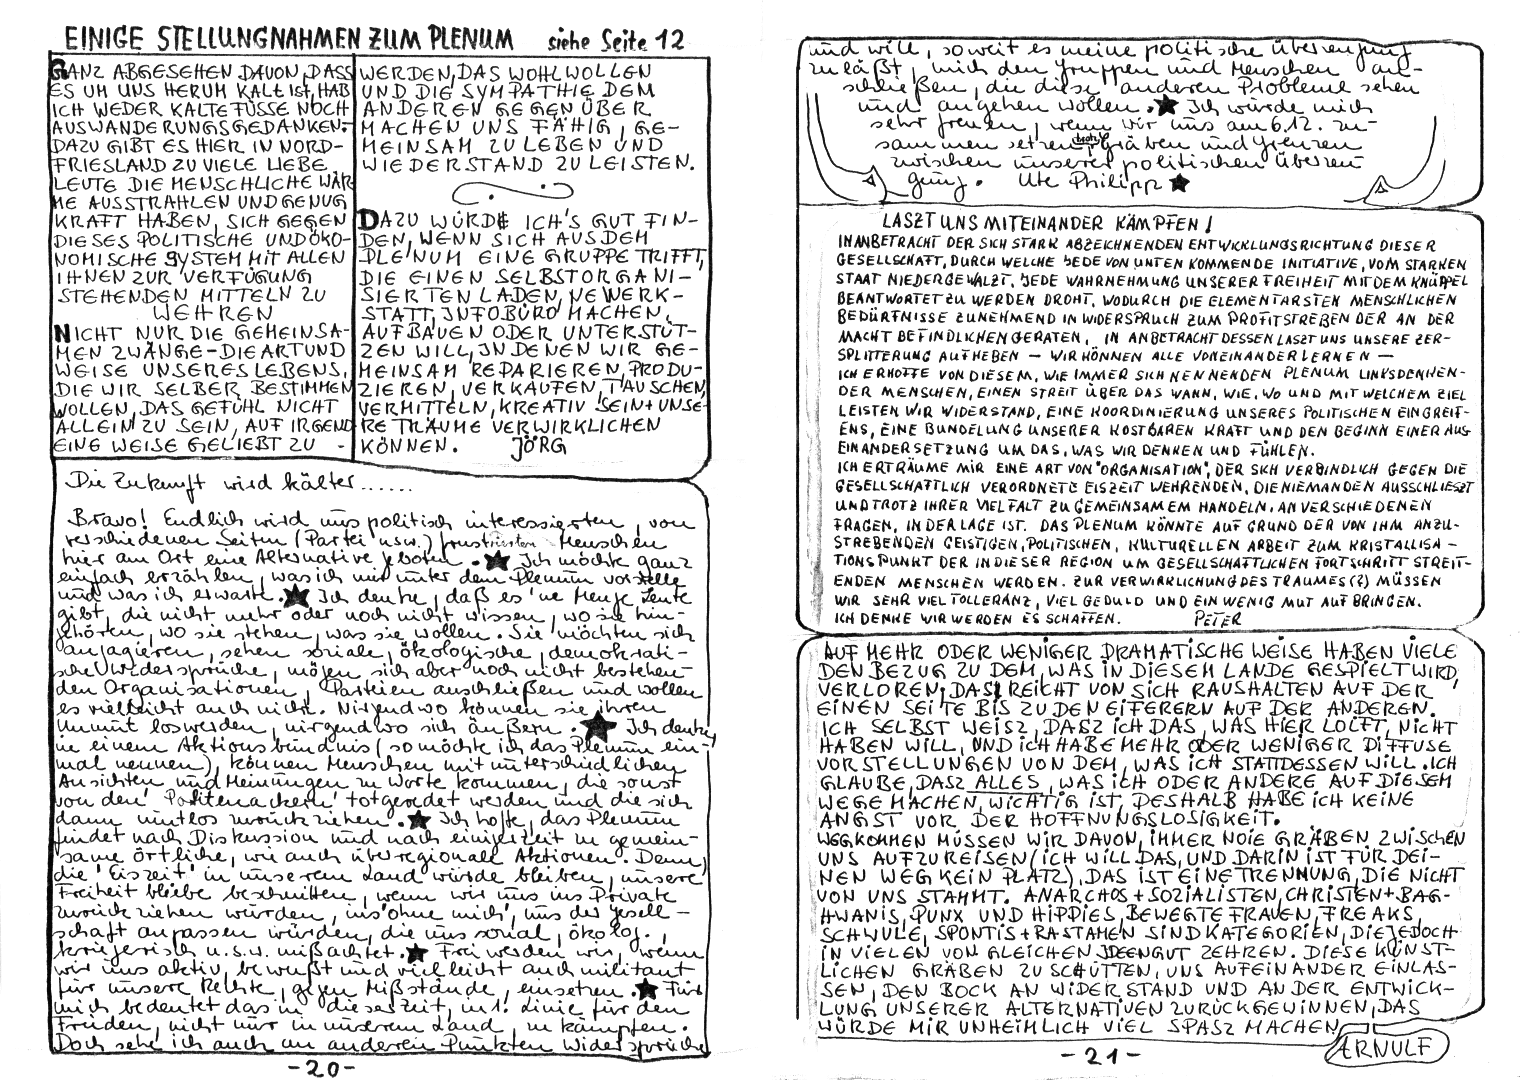 EINIGE STELLUNGNAHMEN ZUM PLENUM siehe Seite 12
GANZ ABGESEHEN DAVON, DASS
ES UM UNS HERUM KALT ist, HAB
ICH WEDER KALTE FÜSSE NOCH
AUSWANDERUNGSGEDANKEN.
DAZU GIBT ES HIER IN NORD-
FRIESLAND ZU VIELE LIEBE
LEUTE DIE MENSCHLICHE WÄR
ME AUSSTRAHLEN UND GENUG
KRAFT HABEN, SICH GEGEN
DIESES POLITISCHE UND ÖKO-
NOMISCHE SYSTEM MIT ALLEN
IHNEN ZUR VERFÜGUNG
STEHENDEN MITTELN ZU
WEHREN
NICHT NUR DIE GEMEINSA-
MEN ZWÄNGE - DIE ART UND
WEISE UNSERES LEBENS,
DIE WIR SELBER BESTIMMEN
WOLLEN, DAS GEFÜHL NICHT
ALLEIN ZU SEIN, AUF IRGEND
EINE WEISE GELIEBT ZU -
WERDEN, DAS WOHLWOLLEN
UND DIE SYMPATHIE DEM
ANDEREN GEGENÜBER
MACHEN UNS FÄHIG, GE-
MEINSAM ZU LEBEN UND
WIEDERSTAND ZU LEISTEN.
DAZU WÜRDE ICH'S GUT FIN-
DEN, WENN SICH AUS DEM
PLENUM EINE GRUPPE TRIFFT,
DIE EINEN SELBSTORGANI-
SIERTEN LADEN, NE WERK-
STATT, INFOBÜRO MACHEN,
AUFBAUEN ODER UNTERSTÜT-
ZEN WILL, IN DENEN WIR GE-
MEINSAM REPARIEREN, PRODU-
ZIEREN, VERKAUFEN, TAUSCHEN,
VERMITTELN, KREATIV SEIN + UNSE-
RE TRÄUME VERWIRKLICHEN
KÖNNEN. JÖRG
Die Zukunft wird kälter......
Bravo! Endlich wird uns politisch interessierten, von
verschiedenen Seiten (Partei usw.) frustrierten Menschen
hier am Ort eine Alternative geboten. ★ Ich möchte ganz
einfach erzählen, was ich mir unter dem Plenum vorstelle
und was ich erwarte. ★ Ich denke, daß es 'ne Menge Leute
gibt, die nicht mehr oder noch nicht wissen, wo sie hin-
gehören, wo sie stehen, was sie wollen. Sie möchten sich
engagieren, sehen soziale, ökologische, demokrati-
sche Widersprüche, mögen sich aber noch nicht bestehen-
den Organisationen, Parteien anschließen und wollen
es vielleicht auch nicht. Nirgendwo können sie ihren
Unmut loswerden, nirgendwo sich äußern. ★ Ich denke,
in einem Aktionsbündnis (so möchte ich das Plenum ein-
mal nennen), können Menschen mit unterschiedlichen
Ansichten und Meinungen zu Worte kommen, die sonst
von den 'Politenackern' totgeredet werden und die sich
dann mutlos zurückziehen. ★ Ich hoffe, das Plenum
findet nach Diskussion und nach einiger Zeit zu gemein-
same örtliche, wie auch überregionale Aktionen. Denn,
die 'Eiszeit' in unserem Land würde bleiben, unsere
Freiheit bliebe beschnitten, wenn wir uns ins Private
zurückziehen würden, ins 'ohne mich', uns der Gesell-
schaft anpassen würden, die uns sozial, ökolog.,
kriegerisch u.s.w. mißachtet. ★ Frei werden wir, wenn
wir uns aktiv, bewußt und vielleicht auch militant
für unsere Rechte, gegen Mißstände, einsetzen. ★ Für
mich bedeutet das in dieser Zeit, in 1. Linie für den
Frieden, nicht nur in unserem Land, zu kämpfen.
Doch sehe ich auch an anderen Punkten Widersprüche
-20-
und will, soweit es meine politische Überzeugung
zuläßt, mich den Gruppen und Menschen an-
schließen, die diese anderen Probleme sehen
und angehen wollen. ★ Ich würde mich
sehr freuen, wenn wir uns am 6.12. zu-
sammen setzen, trotz Gräben und Grenzen
zwischen unserer politischen Überzeu-
gung. Ute Philipp ★
LASZT UNS MITEINANDER KÄMPFEN!
IN ANBETRACHT DER SICH STARK ABZEICHNENDEN ENTWICKLUNGSRICHTUNG DIESER
GESELLSCHAFT, DURCH WELCHE JEDE VON UNTEN KOMMENDE INITIATIVE, VOM STARKEN
STAAT NIEDERGEWALZT, JEDE WAHRNEHMUNG UNSERER FREIHEIT MIT DEM KNÜPPEL
BEANTWORTET ZU WERDEN DROHT, WODURCH DIE ELEMENTARSTEN MENSCHLICHEN
BEDÜRFNISSE ZUNEHMEND IN WIDERSPRUCH ZUM PROFITSTREBEN DER AN DER
MACHT BEFINDLICHEN GERATEN, IN ANBETRACHT DESSEN LASZT UNS UNSERE ZER-
SPLITTERUNG AUFHEBEN — WIR KÖNNEN ALLE VONEINANDER LERNEN —
ICH ERHOFFE VON DIESEM, WIE IMMER SICH NENNENDEN PLENUM LINKSDENKEN-
DER MENSCHEN, EINEN STREIT ÜBER DAS WANN, WIE, WO UND MIT WELCHEM ZIEL
LEISTEN WIR WIDERSTAND, EINE KOORDINIERUNG UNSERES POLITISCHEN EINGREIF-
ENS, EINE BUNDELUNG UNSERER KOSTBAREN KRAFT UND DEN BEGINN EINER AUS
EINANDERSETZUNG UM DAS, WAS WIR DENKEN UND FÜHLEN.
ICH ERTRÄUME MIR EINE ART VON "ORGANISATION", DER SICH VERBINDLICH GEGEN DIE
GESELLSCHAFTLICH VERORDNETE EISZEIT WEHRENDEN, DIE NIEMANDEN AUSSCHLIESZT
UND TROTZ IHRER VIELFALT ZU GEMEINSAMEM HANDELN, AN VERSCHIEDENEN
FRAGEN, IN DER LAGE IST. DAS PLENUM KÖNNTE AUF GRUND DER VON IHM ANZU-
STREBENDEN GEISTIGEN, POLITISCHEN, KULTURELLEN ARBEIT ZUM KRISTALLISA-
TIONSPUNKT DER IN DIESER REGION UM GESELLSCHAFTLICHEN FORTSCHRITT STREIT-
ENDEN MENSCHEN WERDEN. ZUR VERWIRKLICHUNG DES TRAUMES(?) MÜSSEN
WIR SEHR VIEL TOLLERANZ, VIEL GEDULD UND EIN WENIG MUT AUFBRINGEN.
ICH DENKE WIR WERDEN ES SCHAFFEN. PETER
AUF MEHR ODER WENIGER DRAMATISCHE WEISE HABEN VIELE
DEN BEZUG ZU DEM, WAS IN DIESEM LANDE GESPIELT WIRD,
VERLOREN, DAS REICHT VON SICH RAUSHALTEN AUF DER
EINEN SEITE BIS ZU DEN EIFERERN AUF DER ANDEREN.
ICH SELBST WEISZ, DASZ ICH DAS, WAS HIER LÖLFT, NICHT
HABEN WILL, UND ICH HABE MEHR ODER WENIGER DIFFUSE
VORSTELLUNGEN VON DEM, WAS ICH STATTDESSEN WILL. ICH
GLAUBE, DASZ ALLES, WAS ICH ODER ANDERE AUF DIESEM
WEGE MACHEN, WICHTIG IST, DESHALB HABE ICH KEINE
ANGST VOR DER HOFFNUNGSLOSIGKEIT.
WEGKOMMEN MÜSSEN WIR DAVON, IMMER NOIE GRÄBEN ZWISCHEN
UNS AUFZUREISEN (ICH WILL DAS, UND DARIN IST FÜR DEI-
NEN WEG KEIN PLATZ), DAS IST EINE TRENNUNG, DIE NICHT
VON UNS STAMMT. ANARCHOS + SOZIALISTEN, CHRISTEN + BAG-
HWANIS, PUNX UND HIPPIES, BEWEGTE FRAUEN, FREAKS,
SCHWULE, SPONTIS + RASTAMEN SIND KATEGORIEN, DIE JEDOCH
IN VIELEN VON GLEICHEN IDEENGUT ZEHREN. DIESE KÜNST-
LICHEN GRÄBEN ZU SCHÜTTEN, UNS AUFEINANDER EINLAS-
SEN, DEN BOCK AN WIDERSTAND UND AN DER ENTWICK-
LUNG UNSERER ALTERNATIVEN ZURÜCKGEWINNEN, DAS
WÜRDE MIR UNHEIMLICH VIEL SPASZ MACHEN
ARNULF
-21-